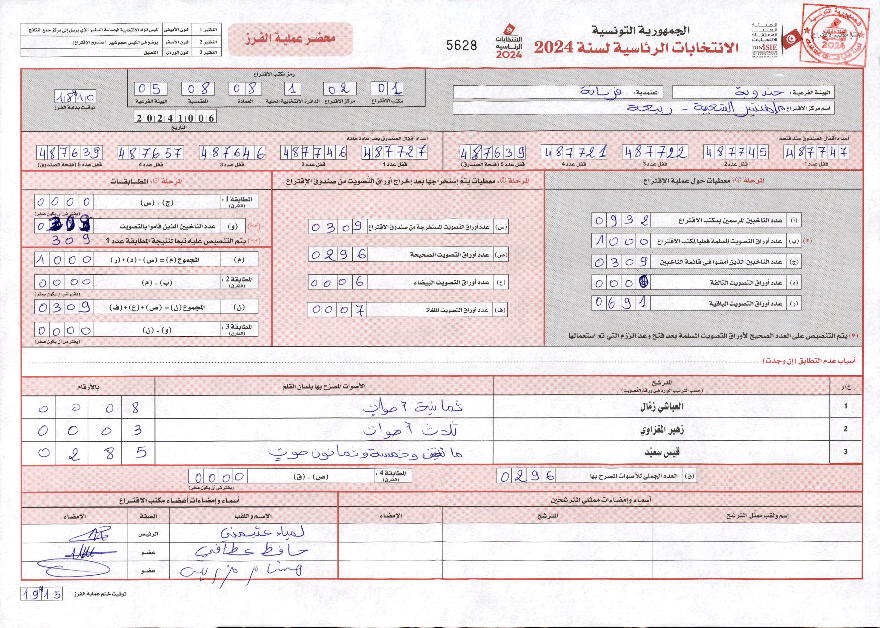 الجمهورية التونسية
الانتخابات الرئاسية لسنة 2024
الانتخابات الرئاسية 2024
5628
محضر عملية الفرز
النظير 1
النظير 2
النظير 3
رمز مكتب الاقتراع
01 02 1 08 08 05
مكتب الاقتراع
مركز الاقتراع
الدائرة الانتخابية المحلية
العمادة
المعتمدية
الهيئة الفرعية
20241006
التاريخ
18h10
توقيت بداية الفرز
الهيئة الفرعية: جندوبة
معتمدية:
اسم مركز الاقتراع:
487747 487745 487722 487721 487639
487727 487746 487646 487657 487639
المرحلة 1: معطيات حول عملية الاقتراع
(أ) عدد الناخبين المرسمين بمكتب الاقتراع 0932
(ب) عدد أوراق التصويت المسلمة فعليا لمكتب الاقتراع 1000
(ج) عدد الناخبين الذين أمضوا في قائمة الناخبين 0309
(د) عدد أوراق التصويت التالفة 0000
(ر) عدد أوراق التصويت الباقية 0691
(*) يتم التنصيص على العدد الصحيح لأوراق التصويت المسلمة بعد فتح وعد الرزم التي تم استعمالها
المرحلة 2: معطيات يتم استخراجها بعد إخراج أوراق التصويت من صندوق الاقتراع
(س) عدد أوراق التصويت المستخرجة من صندوق الاقتراع 0309
(ص) عدد أوراق التصويت الصحيحة 0296
(ع) عدد أوراق التصويت البيضاء 0006
(ف) عدد أوراق التصويت الملغاة 0007
المرحلة 3: المطابقات
المطابقة 1: (ج) - (س) 0000
(و) عدد الناخبين الذين قاموا بالتصويت 0309
309
(م) المجموع (م) = (س) + (د) + (ر) 1000
المطابقة 2: (ب) - (م) 0000
(ن) المجموع (ن) = (ص) + (ع) + (ف) 0309
المطابقة 3: (و) - (ن) 0000
أسباب عدم التطابق (إن وجدت)
ع/ر المترشح الأصوات المصرح بها بلسان القلم بالأرقام
1 العياشي زمّال ثمانية أصوات 0008
2 زهير المغزاوي ثلاث أصوات 0003
3 قيس سعيّد مائتين وخمسة وثمانون صوت 0285
(ق) العدد الجملي للأصوات المصرح بها 0296
المطابقة 4: (ص) - (ق) 0000
أسماء وإمضاءات ممثلي المترشحين
أسماء وإمضاءات أعضاء مكتب الاقتراع
اسم ولقب ممثل المترشح المترشح الإمضاء
الاسم واللقب الصفة الإمضاء
الرئيس
عضو
عضو
توقيت ختم عملية الفرز 19h15